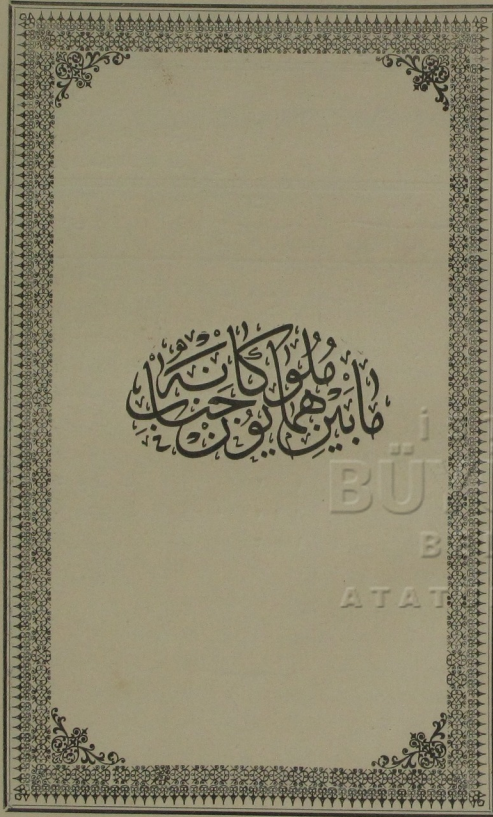 مابين همايون جناب ملوكانه
BÜY
B
ATAT